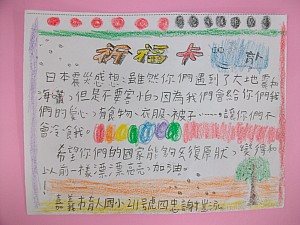 祈福卡
日本震災感想:雖然你們遇到了大地震和
海嘯,但是不要害怕,因為我們會給你們我
們的愛心,有食物、衣服、被子……讓你們不
會冷、餓。
希望你們的國家能夠恢復原狀,變得和
以前一樣漂漂亮亮,加油。
嘉義市育人國小 211號四忠謝